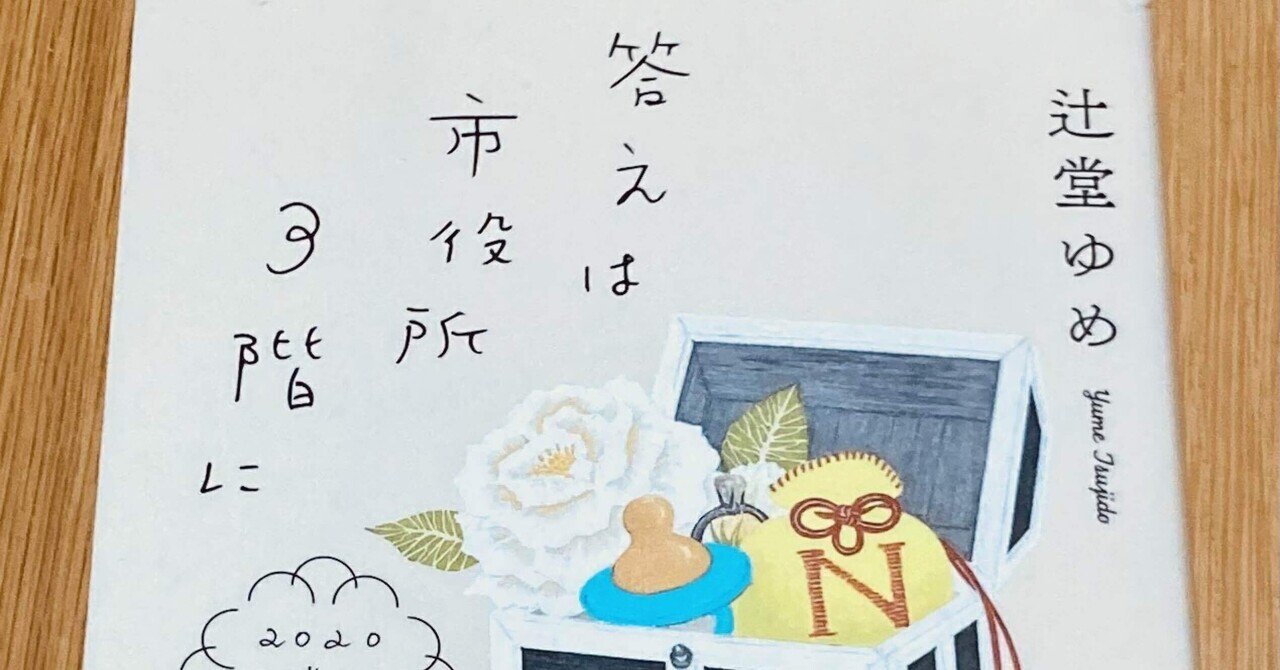 辻堂ゆめ
Yume Tsujido
答えは
市役所
3階に
2020
N